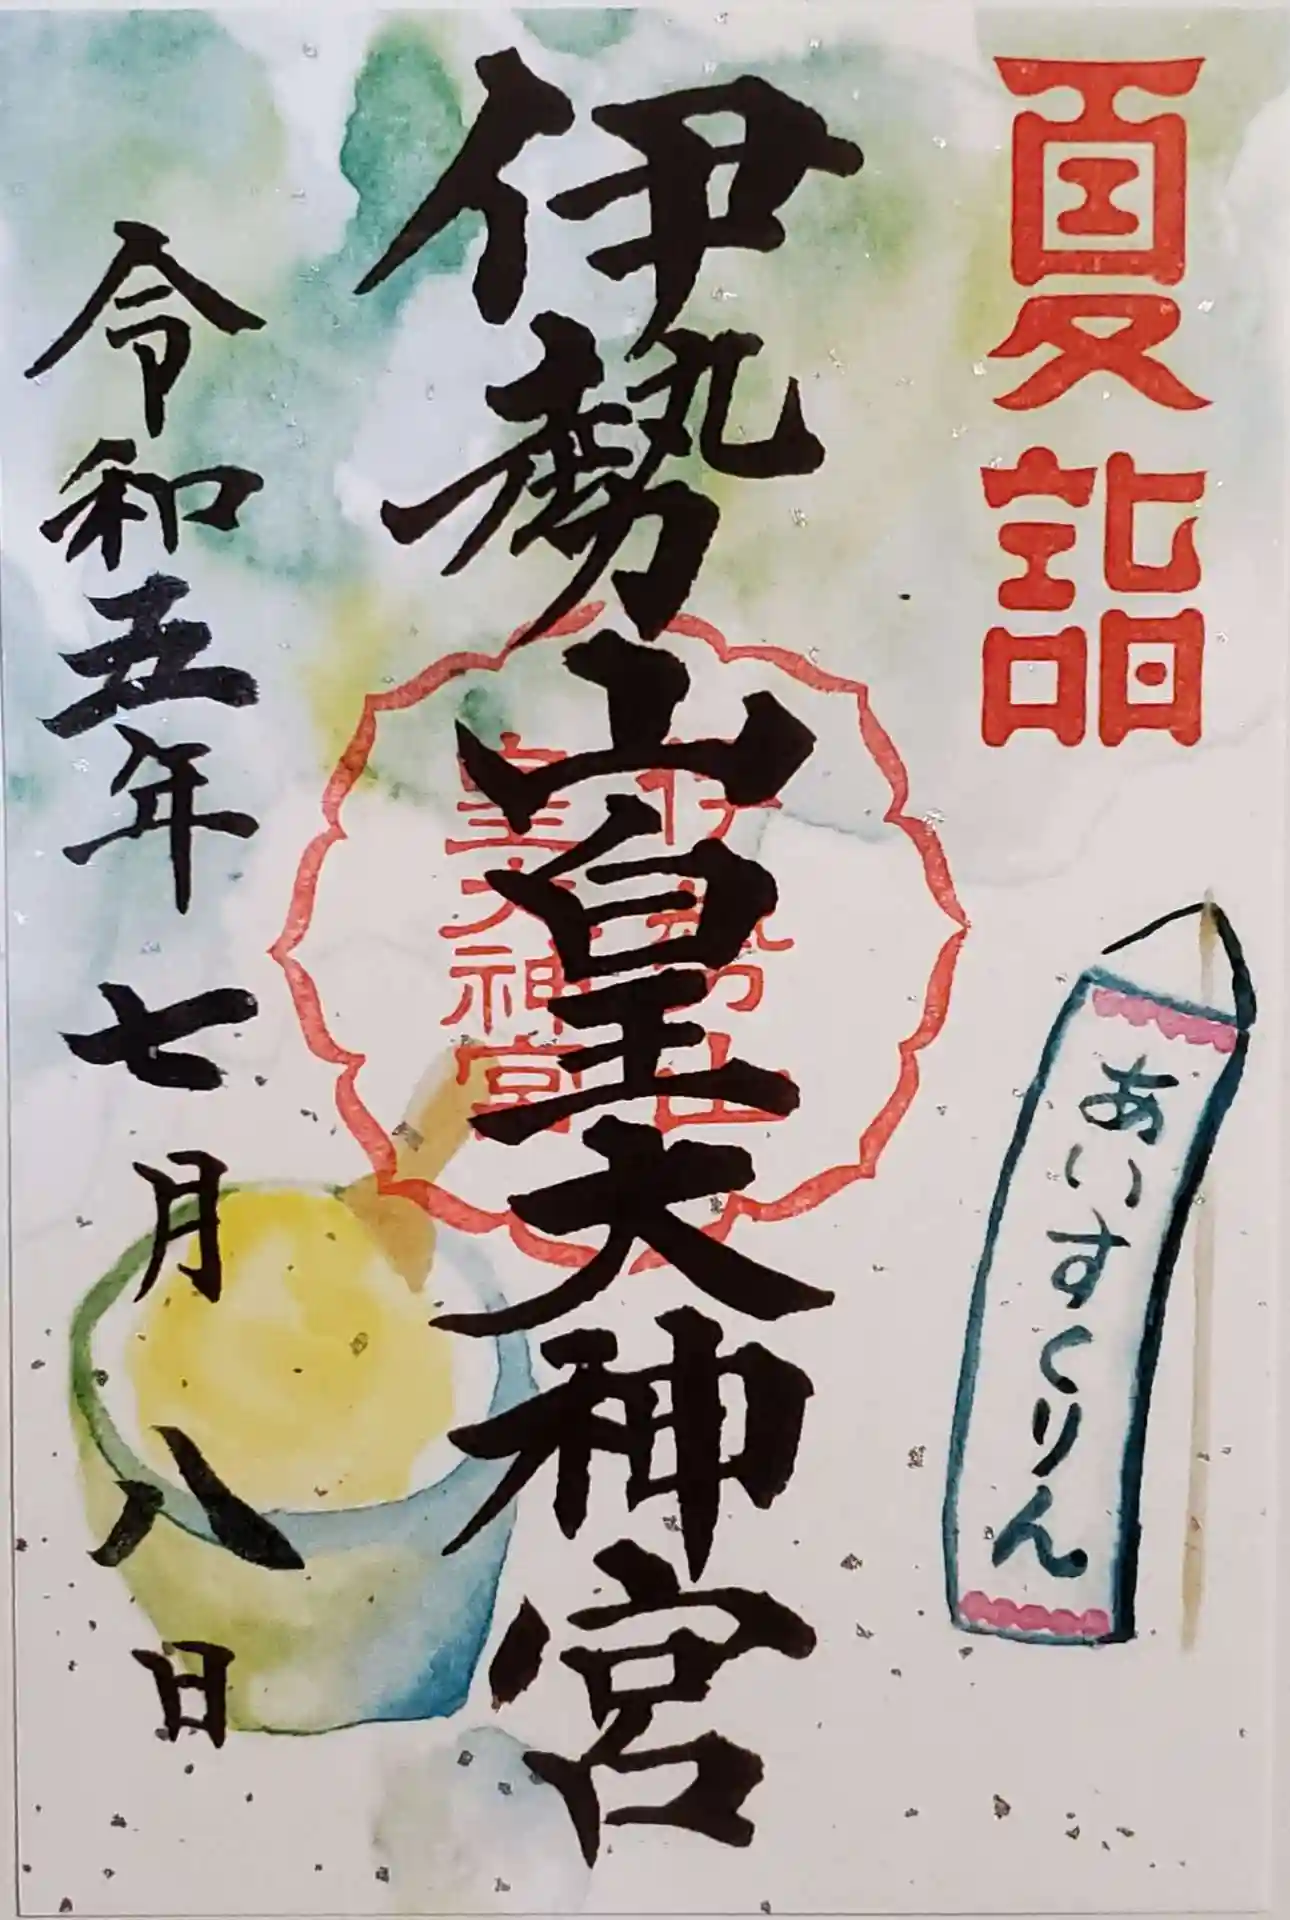 夏詣
あいすくりん
伊勢山皇大神宮
伊勢山
皇大神宮
令和五年七月八日